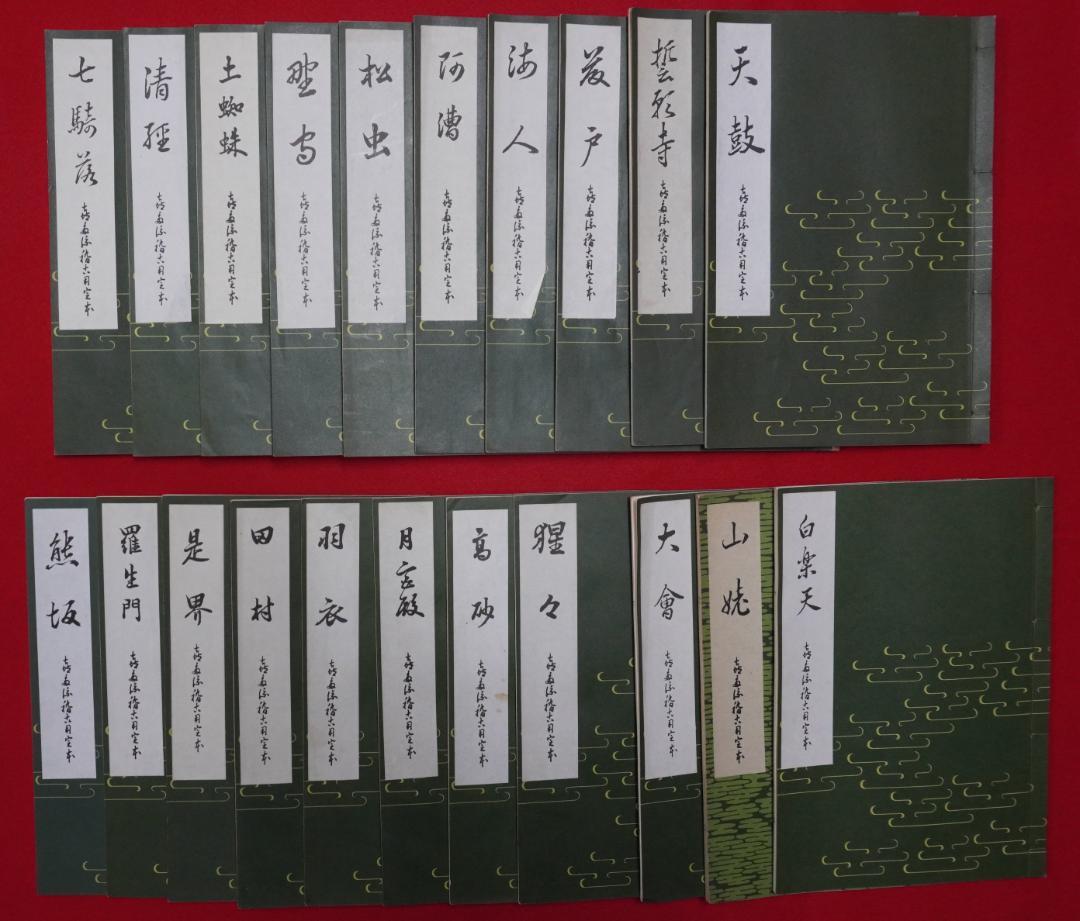 天鼓
喜多流稽古用完本
誓願寺
喜多流稽古用完本
藤戸
喜多流稽古用完本
海人
喜多流稽古用完本
阿漕
喜多流稽古用完本
松虫
喜多流稽古用完本
野守
喜多流稽古用完本
土蜘蛛
喜多流稽古用完本
清経
喜多流稽古用完本
七騎落
喜多流稽古用完本
白楽天
喜多流稽古用完本
山姥
喜多流稽古用完本
大會
喜多流稽古用完本
猩々
喜多流稽古用完本
高砂
喜多流稽古用完本
月宮殿
喜多流稽古用完本
羽衣
喜多流稽古用完本
田村
喜多流稽古用完本
是界
喜多流稽古用完本
羅生門
喜多流稽古用完本
熊坂
喜多流稽古用完本